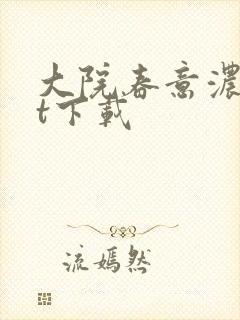 大院春意浓
t下载
流嫣然